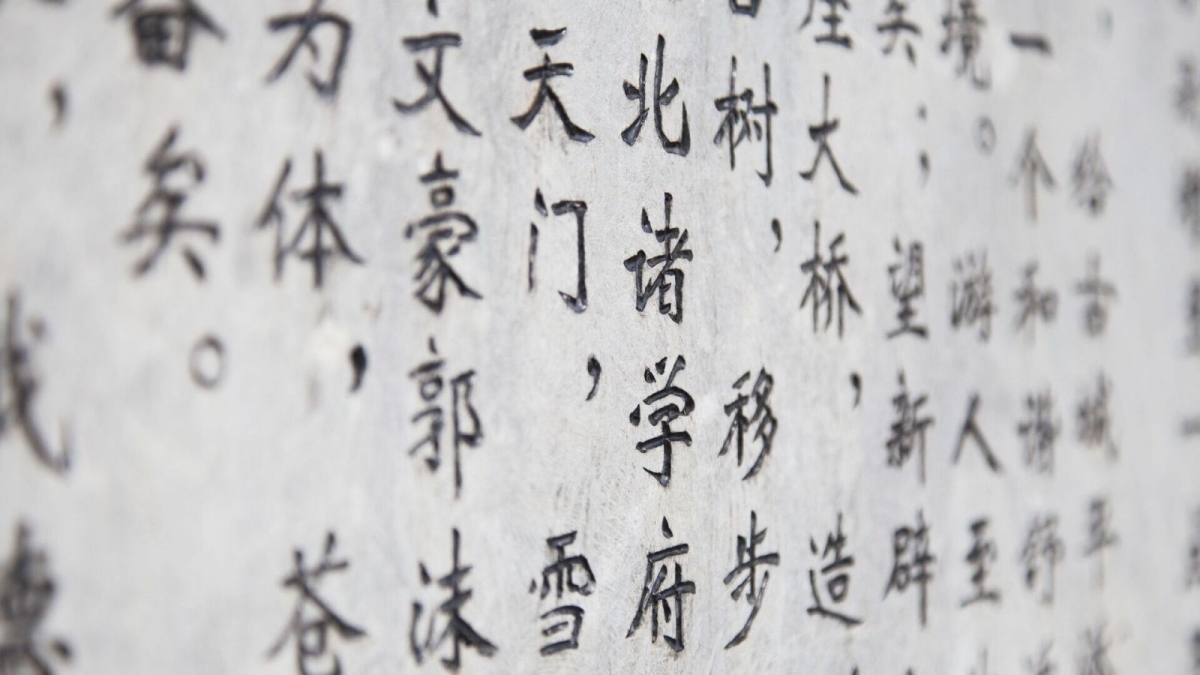 ，给古城平添
一个和谐舒
境。游人至
矣；望新辟
座大桥，造
树，移步
北诸学府
天门，雪
文豪郭沫
为体，苍
奋矣。
，